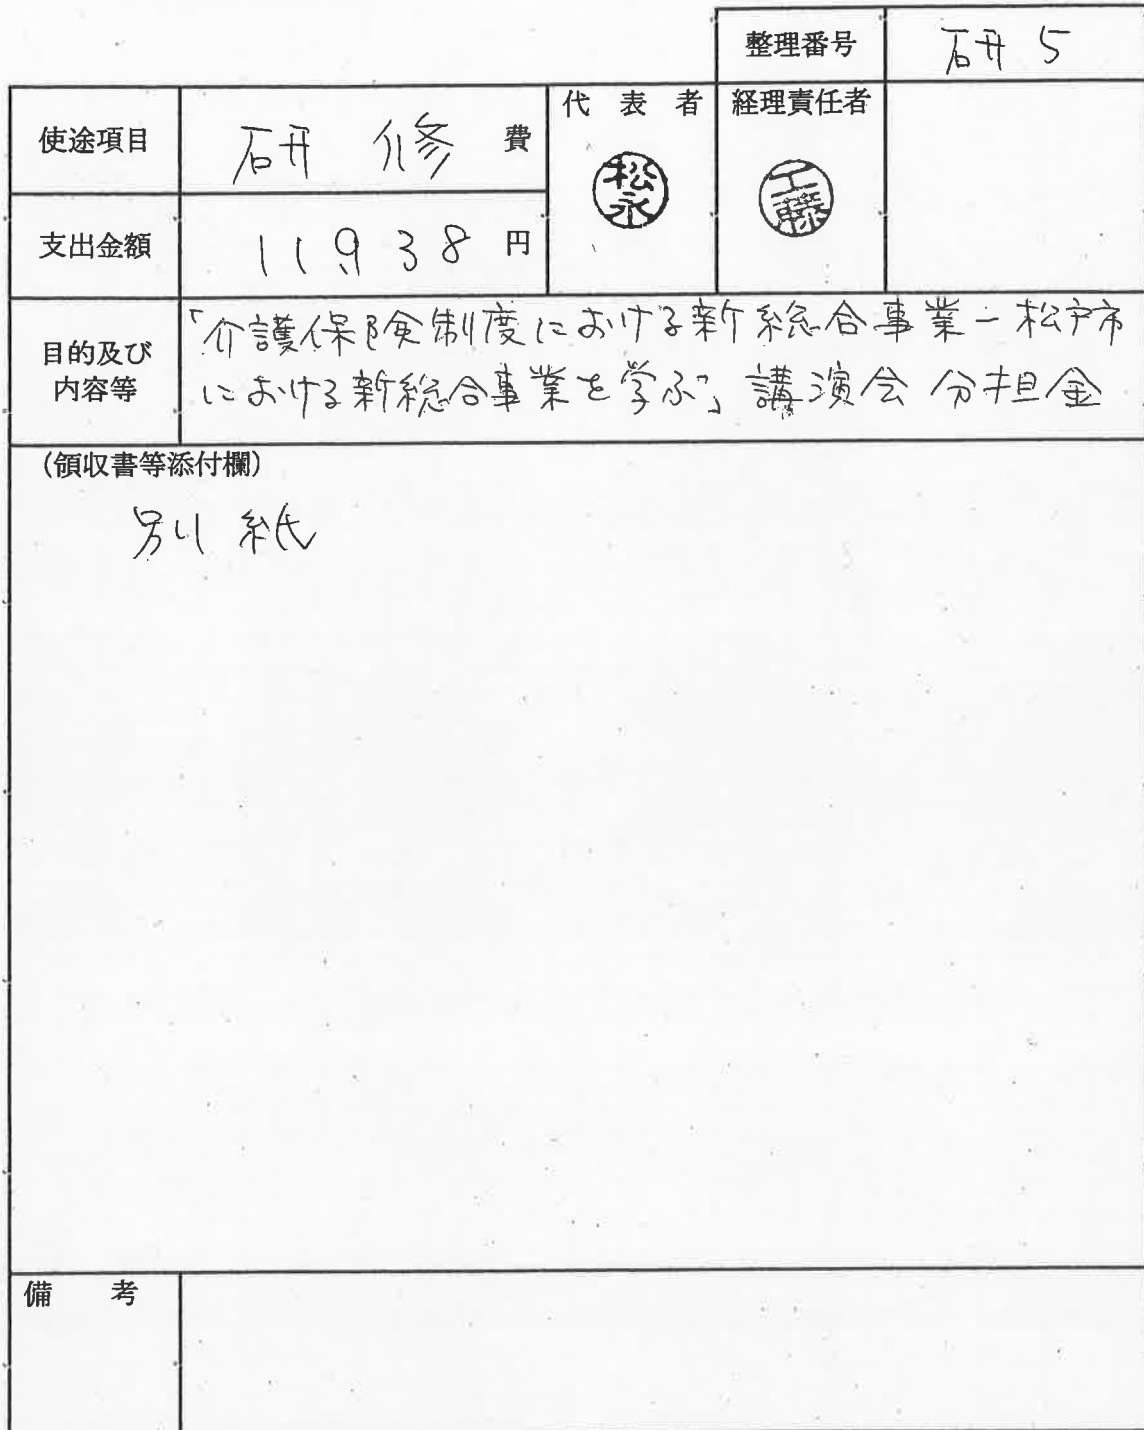 整理番号 研5
使途項目 研修費
代表者 松永
経理責任者 工藤
支出金額 11,938円
目的及び内容等
「介護保険制度における新総合事業－松戸市
における新総合事業を学ぶ」講演会 分担金
(領収書等添付欄)
別紙
備考